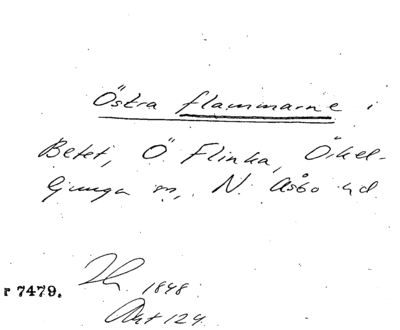 Östra flammarne i
Betet, Ö. Flinka, Örkel-
ljunga sn, N. Åsbo hd
r 7479. Lh 1848
Akt 124